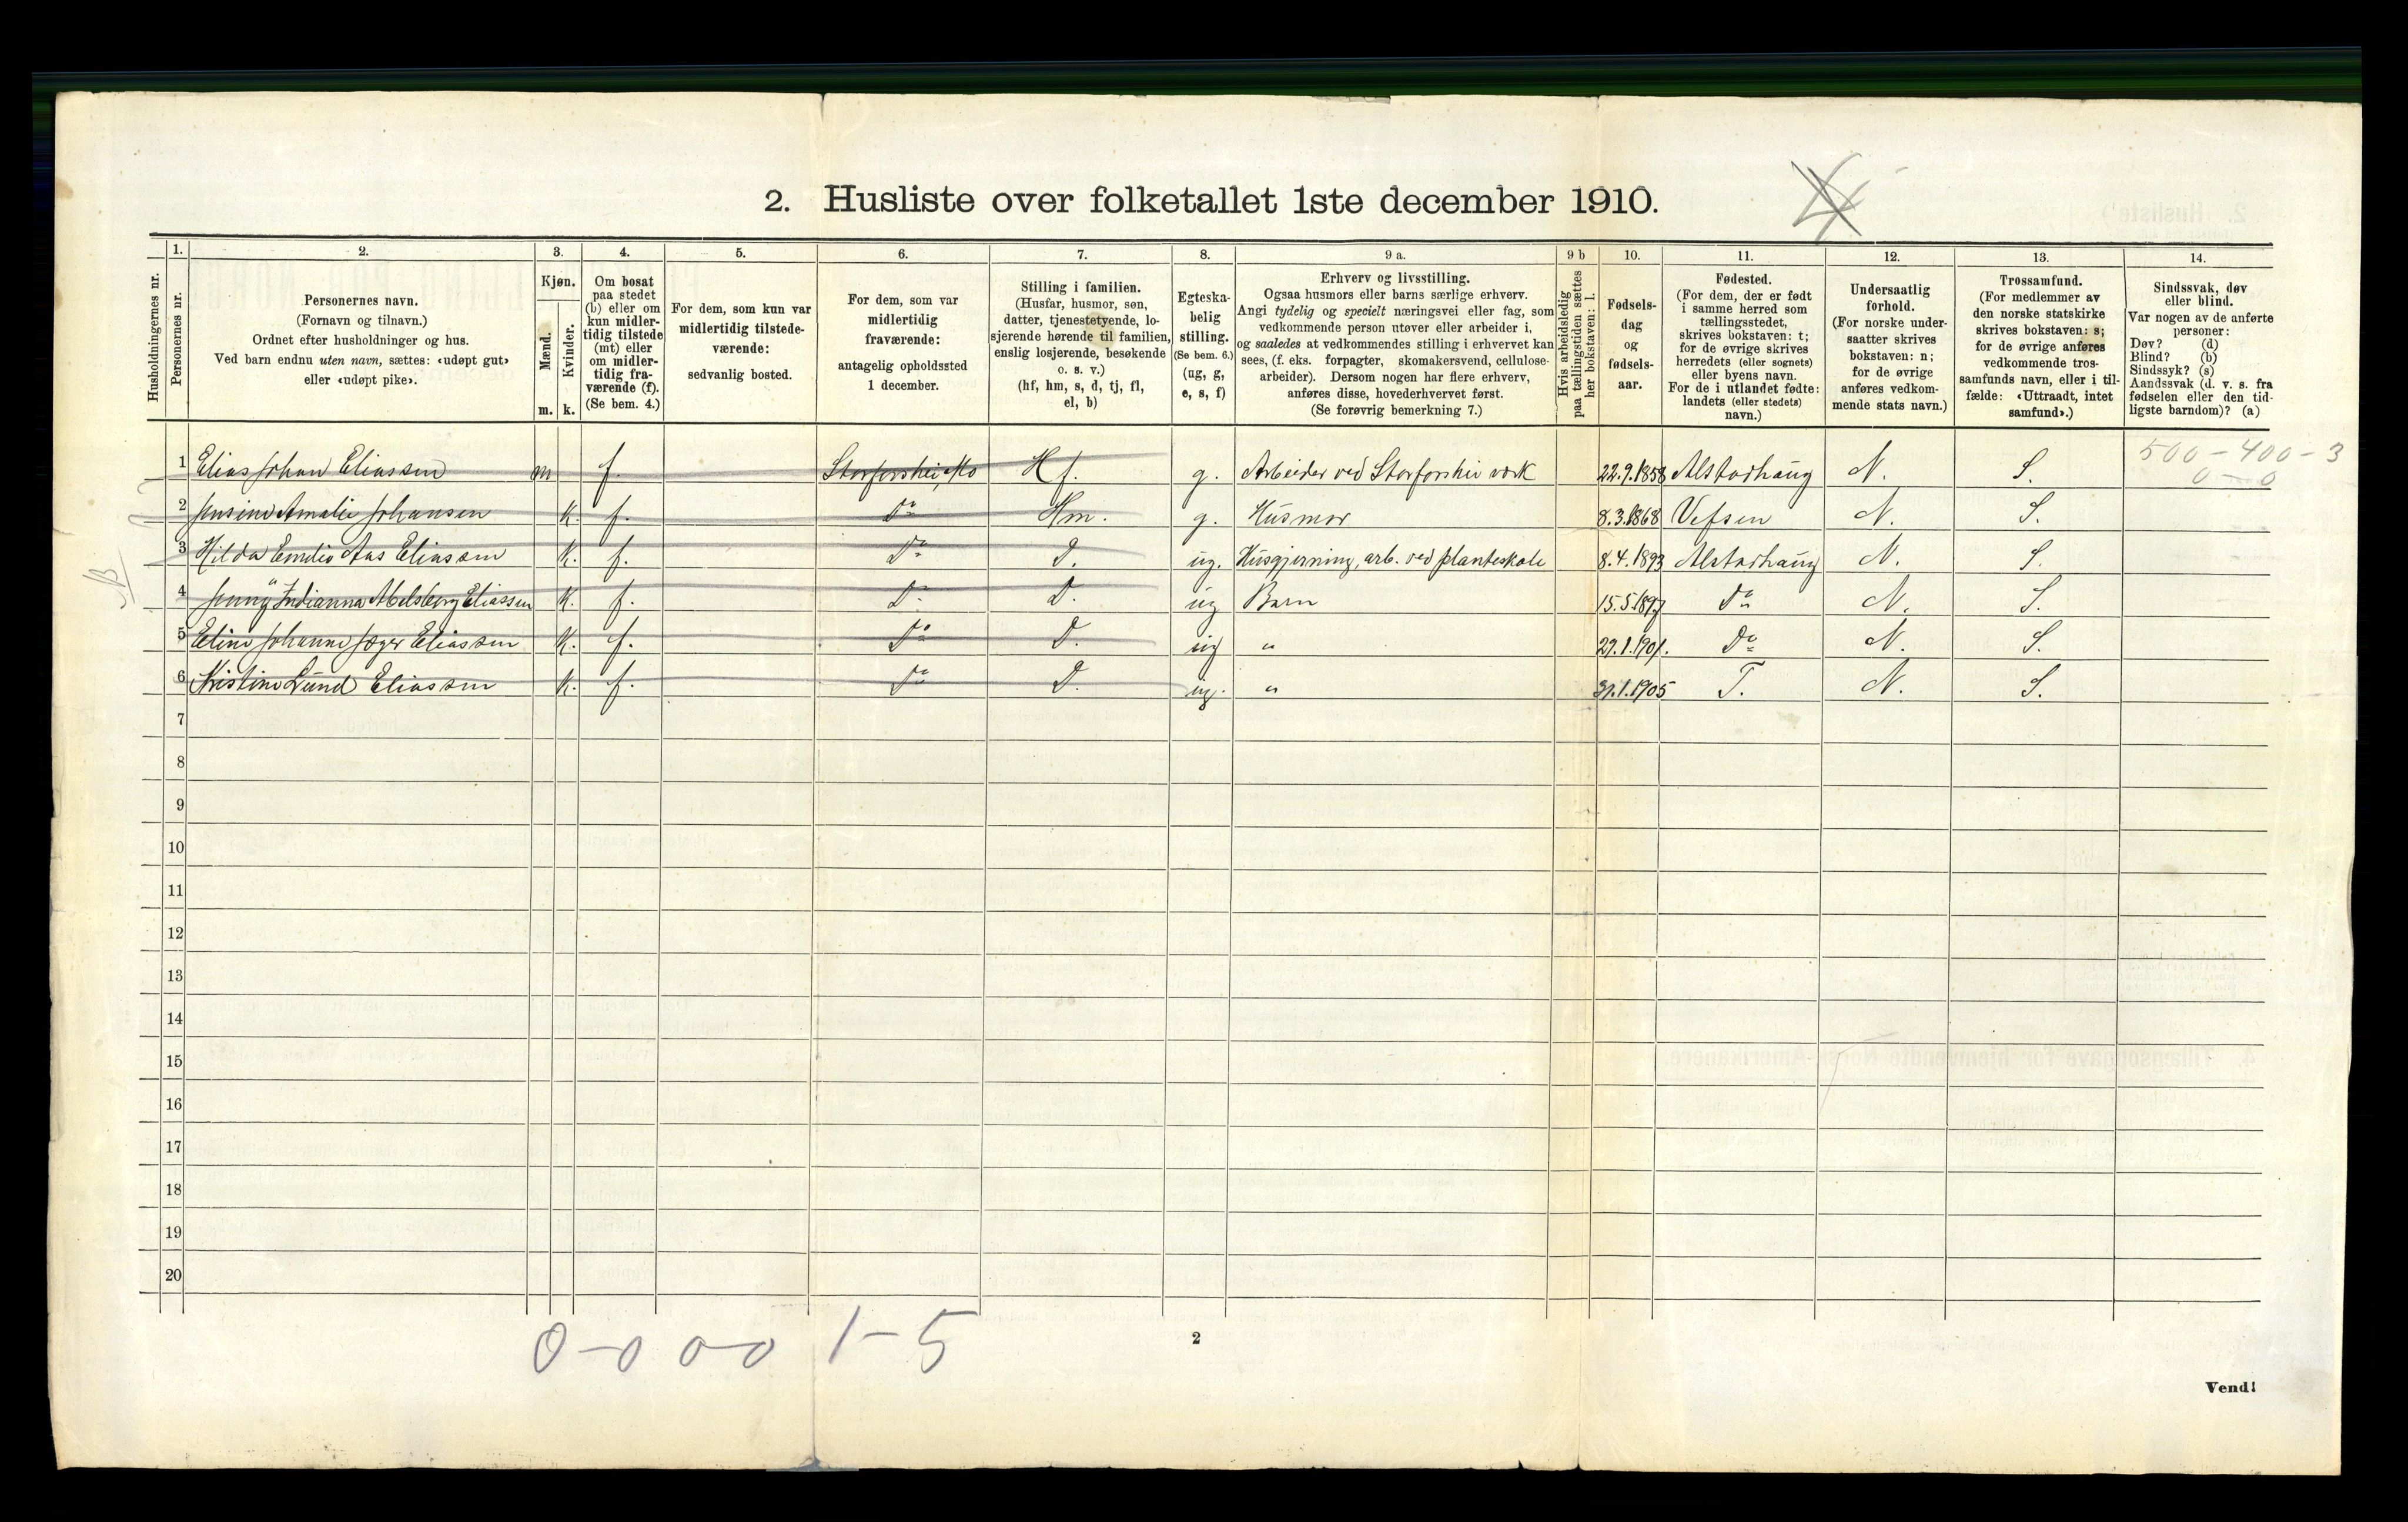 2. Husliste over folketallet 1ste december 1910.
Husholdningernes nr.
1. Personernes nr.
2.
Personernes navn.
(Fornavn og tilnavn.)
Ordnet efter husholdninger og hus.
Ved barn endnu uten navn, sættes: «udøpt gut»
eller «udøpt pike».
3.
Kjøn.
Mænd. Kvinder.
m. k.
4.
Om bosat
paa stedet
(b) eller om
kun midler-
tidig tilstede
(mt) eller
om midler-
tidig fra-
værende (f).
(Se bem. 4.)
5.
For dem, som kun var
midlertidig tilstede-
værende:
sedvanlig bosted.
6.
For dem, som var
midlertidig
fraværende:
antagelig opholdssted
1 december.
7.
Stilling i familien.
(Husfar, husmor, søn,
datter, tjenestetyende, lo-
sjerende hørende til familien,
enslig losjerende, besøkende
o. s. v.)
(hf, hm, s, d, tj, fl,
el, b)
8.
Egteska-
belig
stilling.
(Se bem. 6.)
(ug, g,
e, s, f)
9 a.
Erhverv og livsstilling.
Ogsaa husmors eller barns særlige erhverv.
Angi tydelig og specielt næringsvei eller fag, som
vedkommende person utøver eller arbeider i,
og saaledes at vedkommendes stilling i erhvervet kan
sees, (f. eks. forpagter, skomakersvend, cellulose-
arbeider). Dersom nogen har flere erhverv,
anføres disse, hovederhvervet først.
(Se forøvrig bemerkning 7.)
9 b
Hvis arbeidsledig
paa tællingstiden sættes
her bokstaven: l.
10.
Fødsels-
dag
og
fødsels-
aar.
11.
Fødested.
(For dem, der er født
i samme herred som
tællingsstedet,
skrives bokstaven: t;
for de øvrige skrives
herredets (eller sognets)
eller byens navn.
For de i utlandet fødte:
landets (eller stedets)
navn.)
12.
Undersaatlig
forhold.
(For norske under-
saatter skrives
bokstaven: n;
for de øvrige
anføres vedkom-
mende stats navn.)
13.
Trossamfund.
(For medlemmer av
den norske statskirke
skrives bokstaven: s;
for de øvrige anføres
vedkommende tros-
samfunds navn, eller i til-
fælde: «Uttraadt, intet
samfund».)
14.
Sindssvak, døv
eller blind.
Var nogen av de anførte
personer:
Døv? (d)
Blind? (b)
Sindssyk? (s)
Aandssvak (d. v. s. fra
fødselen eller den tid-
ligste barndom)? (a)
500 - 400 - 3
0 - 0
1 Elias Johan Eliassen m f. Storforshei, Mo Hf. g. Arbeider ved Storforshei verk 22.9.1858 Alstadhaug N. S.
2 Jensine Amalie Johansen K. f. Do Hm. g. Husmor 8.3.1868 Vefsen N. S.
3 Hilda Emilie Aas Eliassen K. f. Do D. ug. Husgjerning, arb. ved planteskole 8.4.1893 Alstadhaug N. S.
4 Jenny Indianna Abelsborg Eliassen K. f. Do D. ug Barn 15.5.1897 Do N. S.
5 Eline Johanne Jæger Eliassen K. f. Do D. ug " 29.1.1901. Do N. S.
6 Kristine Lund Eliassen K. f. Do D. ug. " 31.1.1905 T. N. S.
7
8
9
10
11
12
13
14
15
16
17
18
19
20
0-0 0-0 1-5
2
Vend!